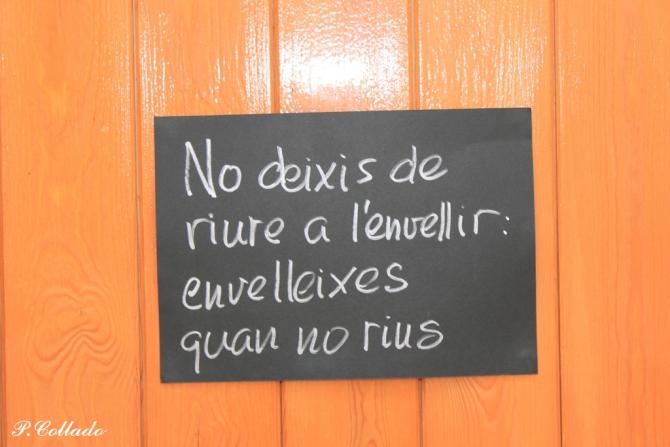 No deixis de
riure a l'envellir:
envelleixes
quan no rius
P.Collado